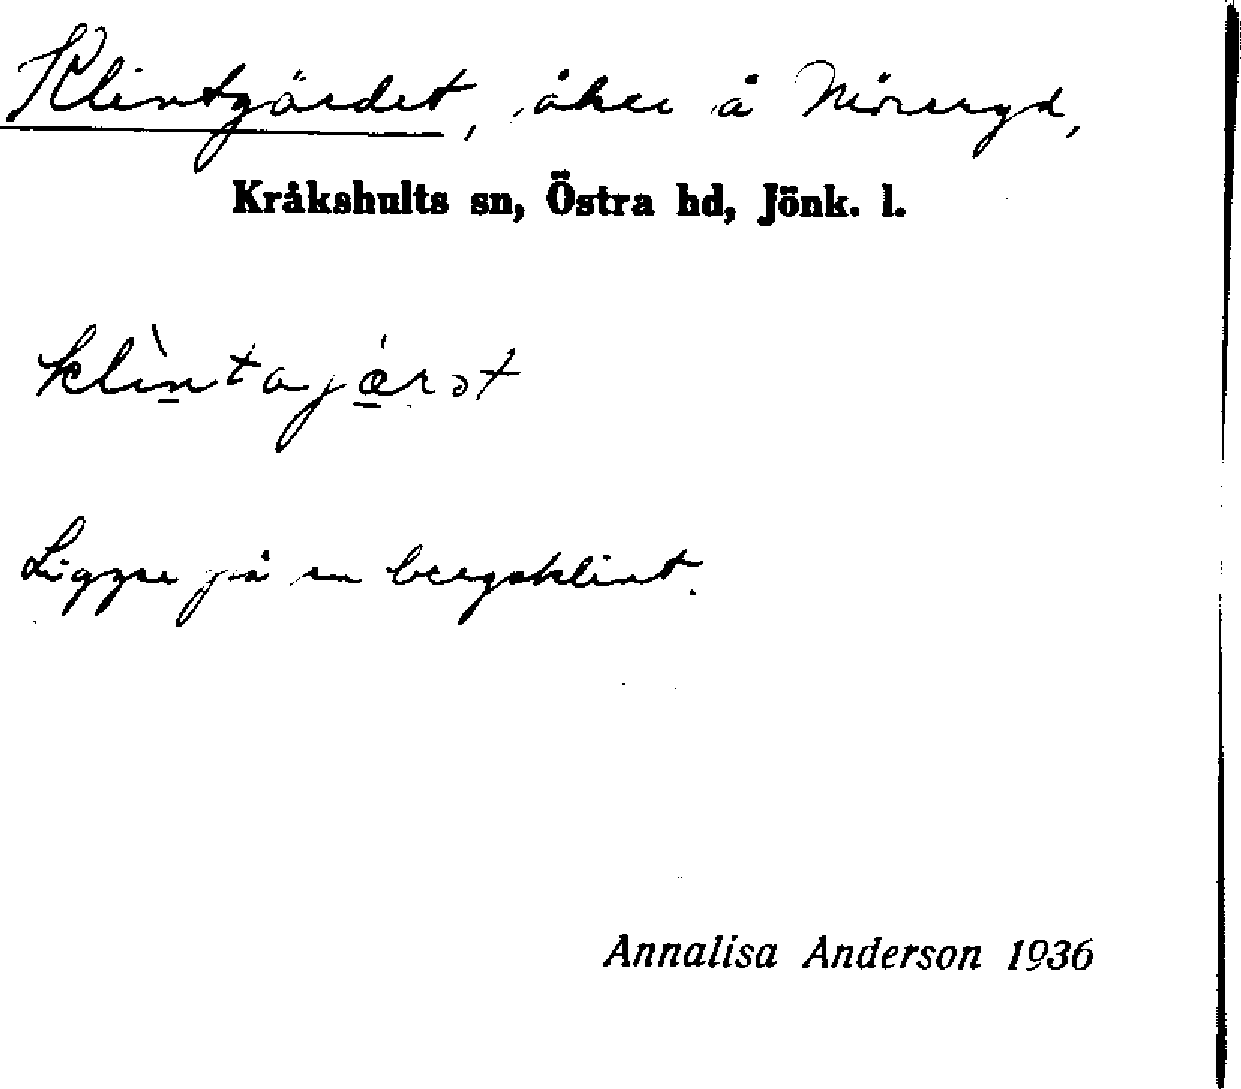 Klintgärdet, åker å Möreryd,
Kråkshults sn, Östra hd, Jönk. l.
klìntajárət
Ligger på en bergsklint.
Annalisa Anderson 1936